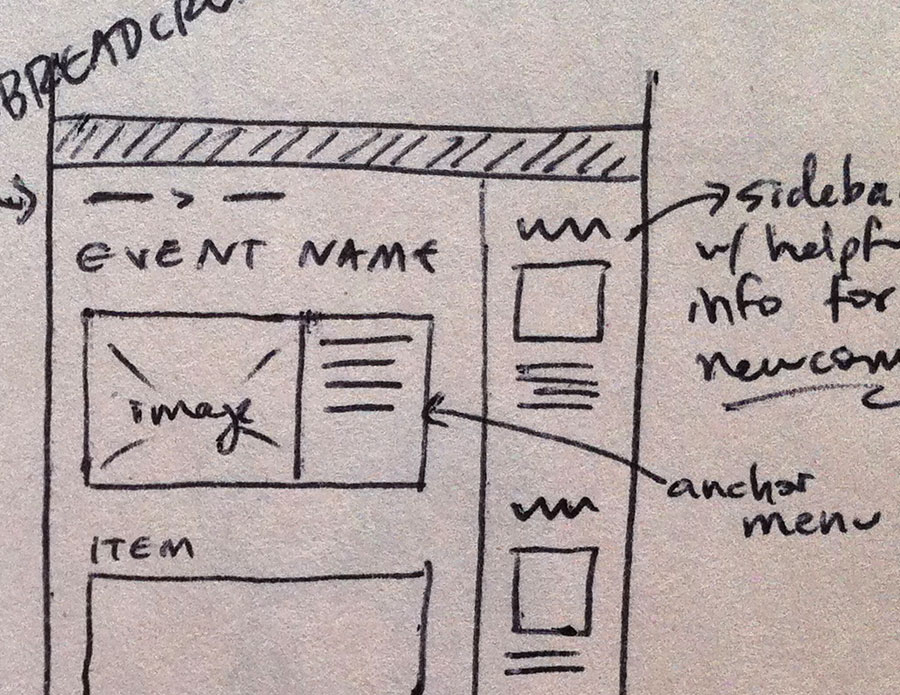 BREADCRU
>
EVENT NAME
image
ITEM
sideba
w/ helpf
info for
newcom
anchor
menu